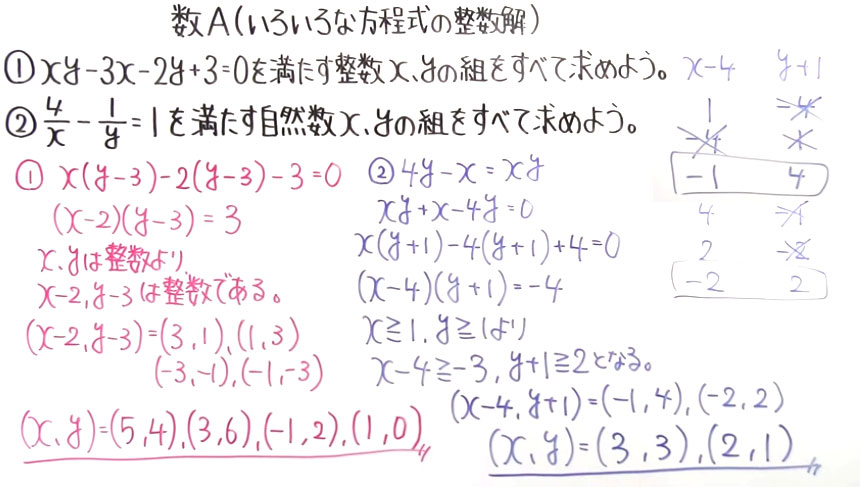 数A(いろいろな方程式の整数解)
① xy-3x-2y+3=0を満たす整数x、yの組をすべて求めよう。
② 4/x - 1/y = 1 を満たす自然数x、yの組をすべて求めよう。
① x(y-3)-2(y-3)-3=0
(x-2)(y-3)=3
x、yは整数より、
x-2,y-3は整数である。
(x-2,y-3)=(3,1),(1,3)
(-3,-1),(-1,-3)
(x、y)=(5,4),(3,6),(-1,2),(1,0)
② 4y-x=xy
xy+x-4y=0
x(y+1)-4(y+1)+4=0
(x-4)(y+1)=-4
x≧1、y≧1より
x-4≧-3,y+1≧2となる。
(x-4,y+1)=(-1,4),(-2,2)
(x、y)=(3,3),(2,1)
x-4 y+1
1 -4
-4 1
-1 4
4 -1
2 -2
-2 2